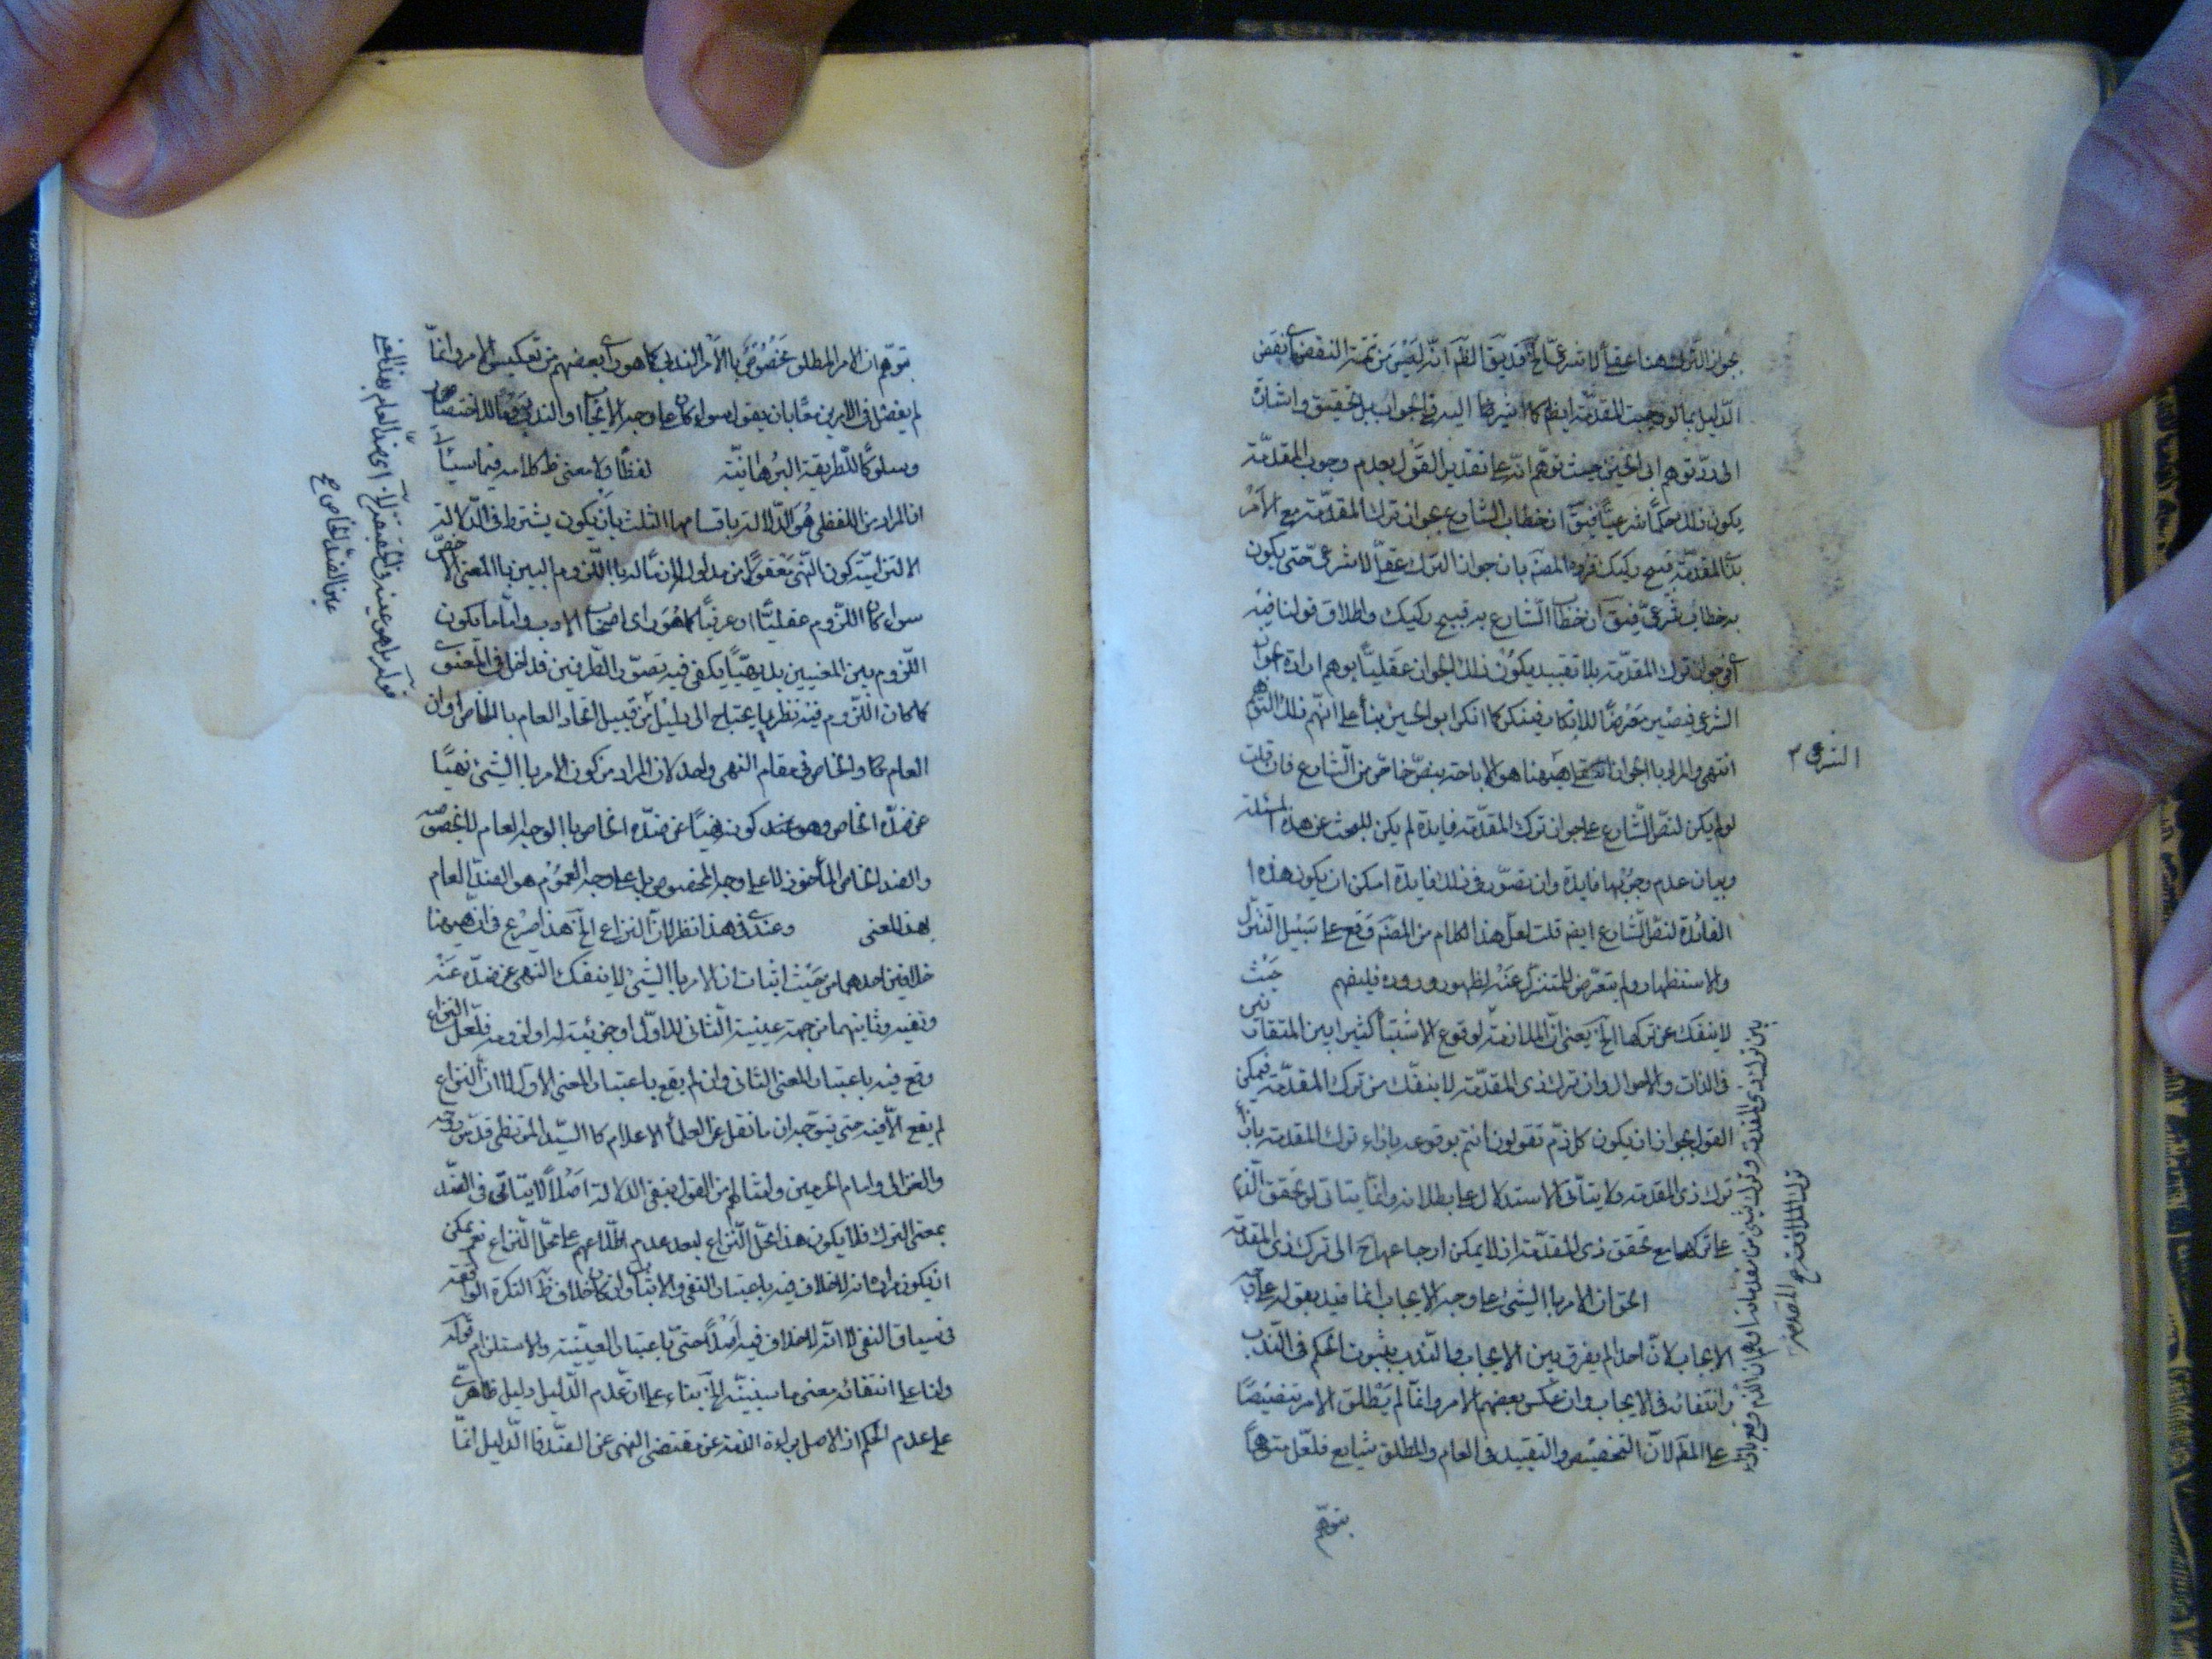 بجواز الترك هنا عقلا لا شرعا الخ قد يق الظ انه ليس من تتمة النقض اى نقض
الدليل بما لو وجبت المقدمة ايضا كما اشرنا اليه فى الجواب بل تحقيق واشارة
الى رد توهم ابى الحسين حيث توهم انه على تقدير القول بعدم وجوب المقدمة
يكون ذلك حكما شرعيا فيق ان خطاب الشارع بجواز ترك المقدمة مع الامر
بذى المقدمة قبيح ركيك فرده المصنم بان جواز الترك عقلا لا شرعى حتى يكون
به خطاب شرعى فيق ان خطاب الشارع به قبيح ركيك واطلاق قولنا فيه
اى فى جواز ترك المقدمة بلا تقييد يكون ذلك الجواز عقليا يوهم ارادة الجواز
الشرعى فيصير معرضا للانكار فينكر كما انكر ابو الحسين بناء على انهم ذلك التوهم
انتهى والمراد بالجواز ههنا هو الاباحة بنص خاص من الشارع فان قلت
لو لم يكن لنص الشارع على جواز ترك المقدمة فايدة لم يكن للبحث عن هذه المسئلة
وبيان عدم وجوبها فايدة وان تصور فى ذلك فايدة امكن ان يكون هذه ا
الفائدة لنص الشارع ايضا قلت لعل هذا الكلام من المصنم وقع على سبيل التنزل
والاستظهار ولم يتعرض للمتنزل عنه لظهور وروده فليفهم حيث
لا ينفك عن تركها الخ يعنى ان الملازمة لوقوع الاشتباه كثيرا بين المتقاربين
فى الذات والاحوال وان ترك ذى المقدمة لا ينفك من ترك المقدمة فيمكن
القول بجواز ان يكون كل ذم تقولون انتم بوقوعه بازاء ترك المقدمة بازاء
ترك ذى المقدمة ولا يتأتى الاستدلال على بطلانه وانما يتاتى لو تحقق الذم
على تركها مع تحقق ذى المقدمة اذ لا يمكن ارجاعها ح الى ترك ذى المقدمة
الحق ان الامر بالشئ على وجه الايجاب انما قيد بقوله على وجه
الايجاب لان احدا لم يفرق بين الايجاب والندب بثبوت الحكم فى الندب
وانتفائه فى الايجاب وان عكس بعضهم الامر وانما لم يطلق الامر تنصيصا
على العام لان التخصيص والتقييد فى العام والمطلق شايع فلعل متوهما
يتوهم
الشرعى ٢
بين ترك ذى المقدمة وترك شئ من مقدماته
ترك الملازمة
يتوهم ان الامر المطلق مخصوص بالامر الندبى كما هو رأى بعضهم من تعكيس الامر وانما
لم يفصل فى الامرين معا بان يقول سواء كان على وجه الايجاب او الندب روما للاختصار
وسلوكا للطريقة البرهانية لفظا ولا معنى ظ كلامه فيما سيأتى
ان المراد من اللفظى هو الدلالة باقسامها الثلث بان يكون يشترط فى الدلالة
الالتزامية كون الشئ معقولا من مدلول لازما له باللزوم البين بالمعنى الاخص
سواء كان اللزوم عقليا او عرفيا كما هو رأى اصحاب الادب واما ما يكون
اللزوم بين المعنيين بديهيا يكفى فيه تصور الطرفين فداخل فى المعنوى
كما كان اللزوم فيه نظريا يحتاج الى دليل من قبيل اتحاد العام بالخاص او ان
العام كما والخاص فى مقام النهى واحد لان المراد من كون الامر بالشئ نهيا
عن ضده الخاص وهو كونه نهيا عن ضده الخاص بالوجه العام لا بخصوصه
والضد الخاص المأخوذ لا على وجه الخصوص بل على وجه العموم هو الضد العام
بهذا المعنى وعندى فى هذا نظر لان النزاع الخ هذا صريح فى ان ههنا
خلافين احدهما من حيث اثبات ان الامر بالشئ لا ينفك النهى عن ضده عنه
ونفيه وثانيهما من جهة عينية الثانى للاول او جزئيته له او لزومه فلعل النزاع
وقع فيه باعتبار المعنى الثانى وان لم يقع باعتبار المعنى الاول لا ان النزاع
لم يقع الا فيه حتى يتوجه ان ما نقل عن العلماء الاعلام كالسيد المرتضى قدس روحه
والغزالى وامام الحرمين وامثالهم من القول بنفى الدلالة اصلا لا يتاتى فى الضد
بمعنى الترك فلا يكون هذا محل النزاع لبعد عدم اطلاعهم على محل النزاع نعم يمكن
ان يكون مراده انه لا خلاف فيه باعتبار النفى والاثبات وان كان خلاف ظ النكرة الواقعة
فى سياق النفى لا انه لا خلاف فيه اصلا حتى باعتبار العينية والاستلزام قوله
ولنا على انتفائه معنى ما سنبينه الخ بناء على ان عدم الدليل دليل ظاهرى
على عدم الحكم اذ الاصل براءة الذمة عن مقتضى النهى عن الضد فالدليل انما
قوله بل هو عينه فى الحقيقة اى ضد العام بهذا المعنى
عين الضد الخاص صح